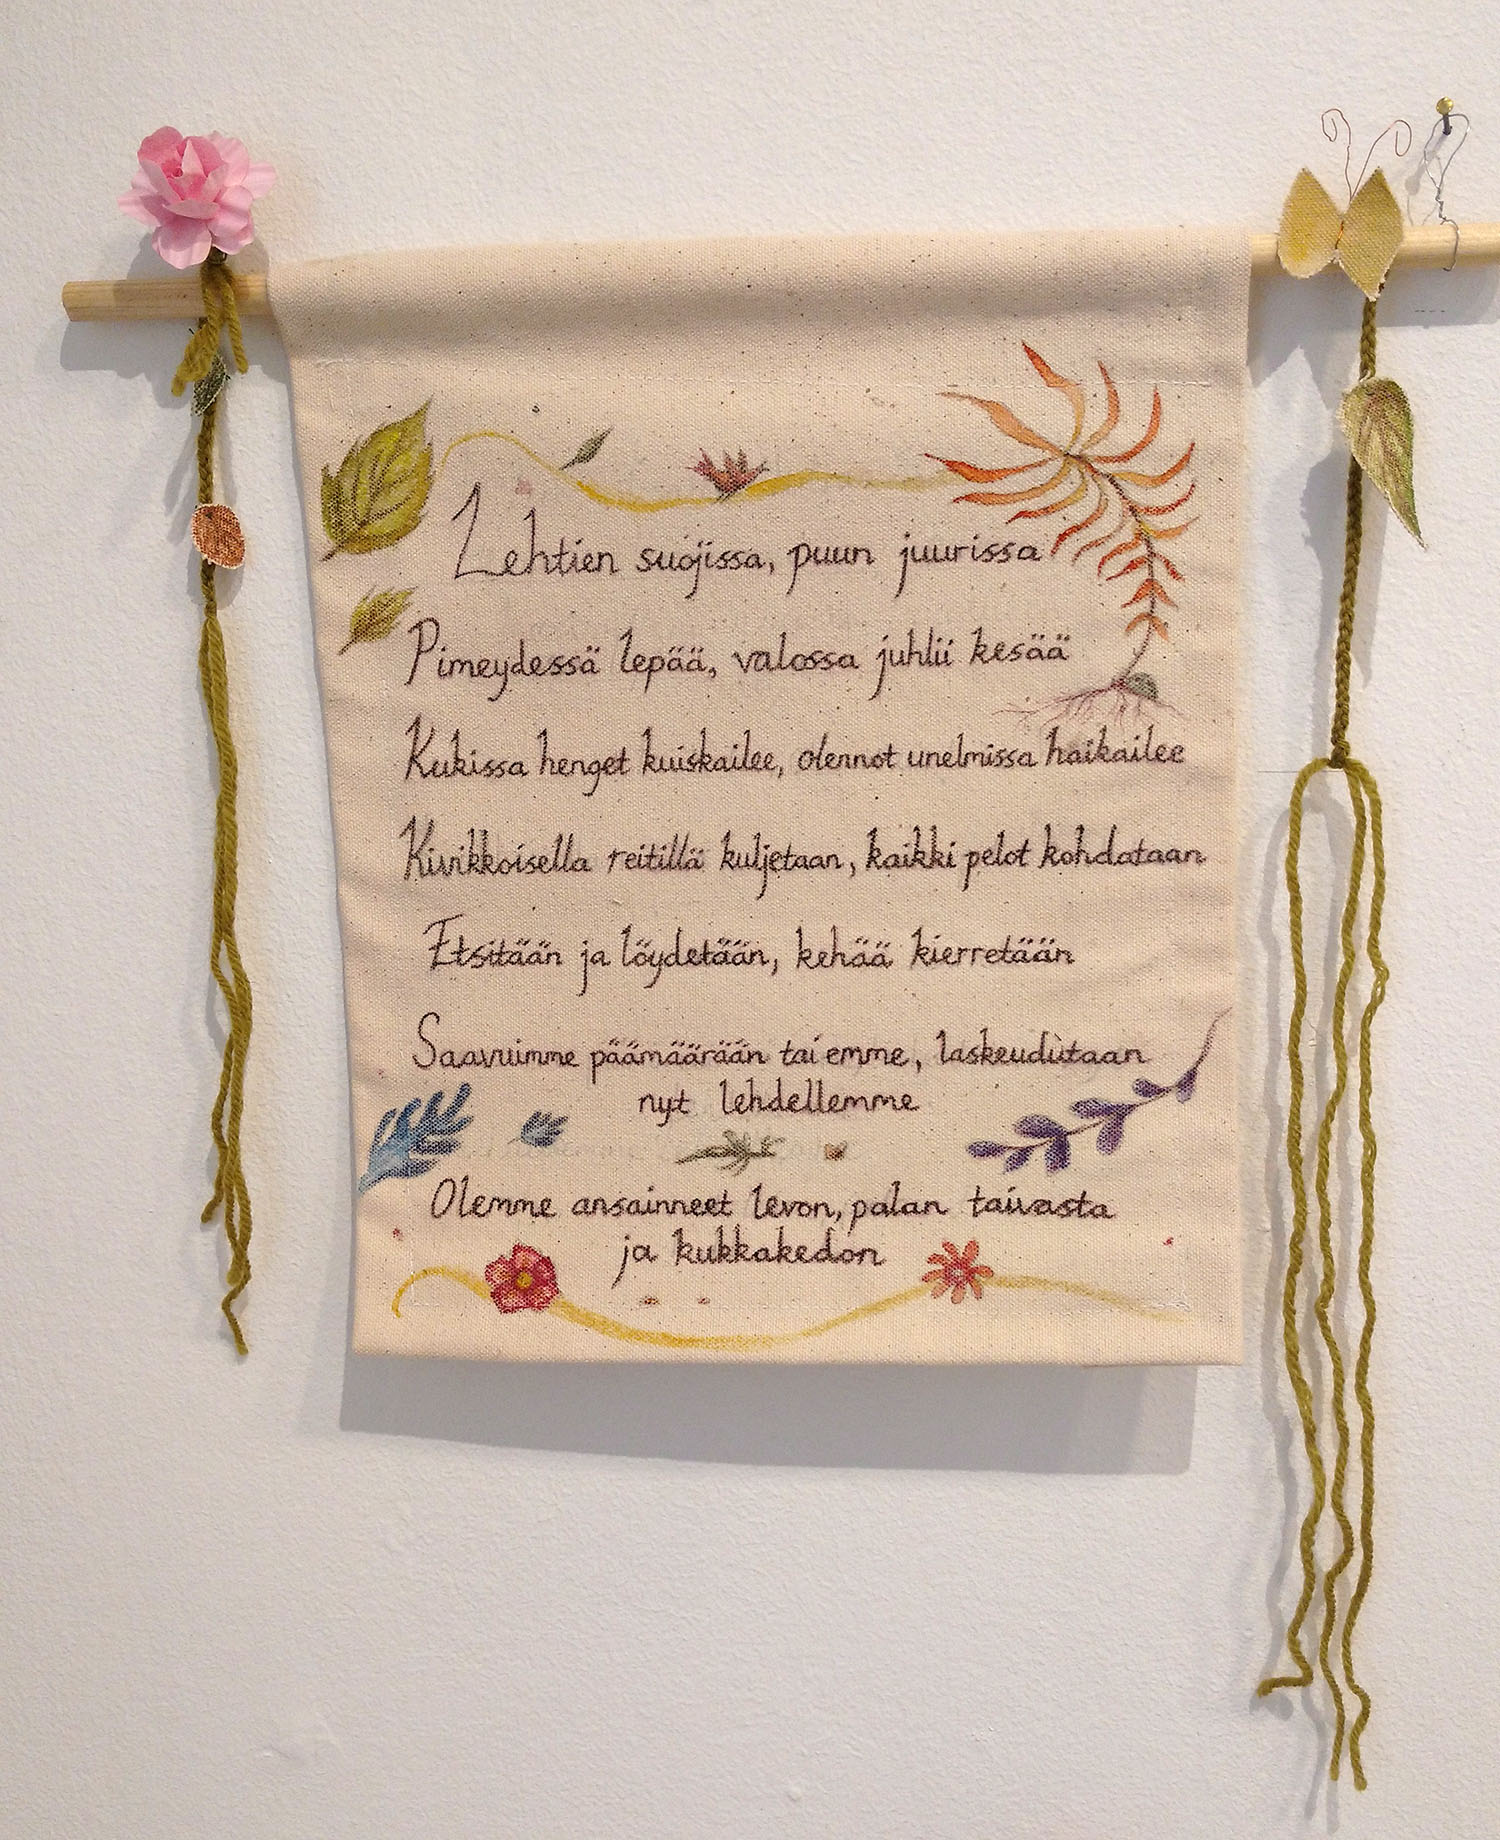 Lehtien suojissa, puun juurissa
Pimeydessä lepää, valossa juhlii kesää
Kukissa henget kuiskailee, olennot unelmissa haikailee
Kivikkoisella reitillä kuljetaan, kaikki pelot kohdataan
Etsitään ja löydetään, kehää kierretään
Saavuimme päämäärään tai emme, laskeudutaan
nyt lehdellemme
Olemme ansainneet levon, palan taivasta
ja kukkakedon